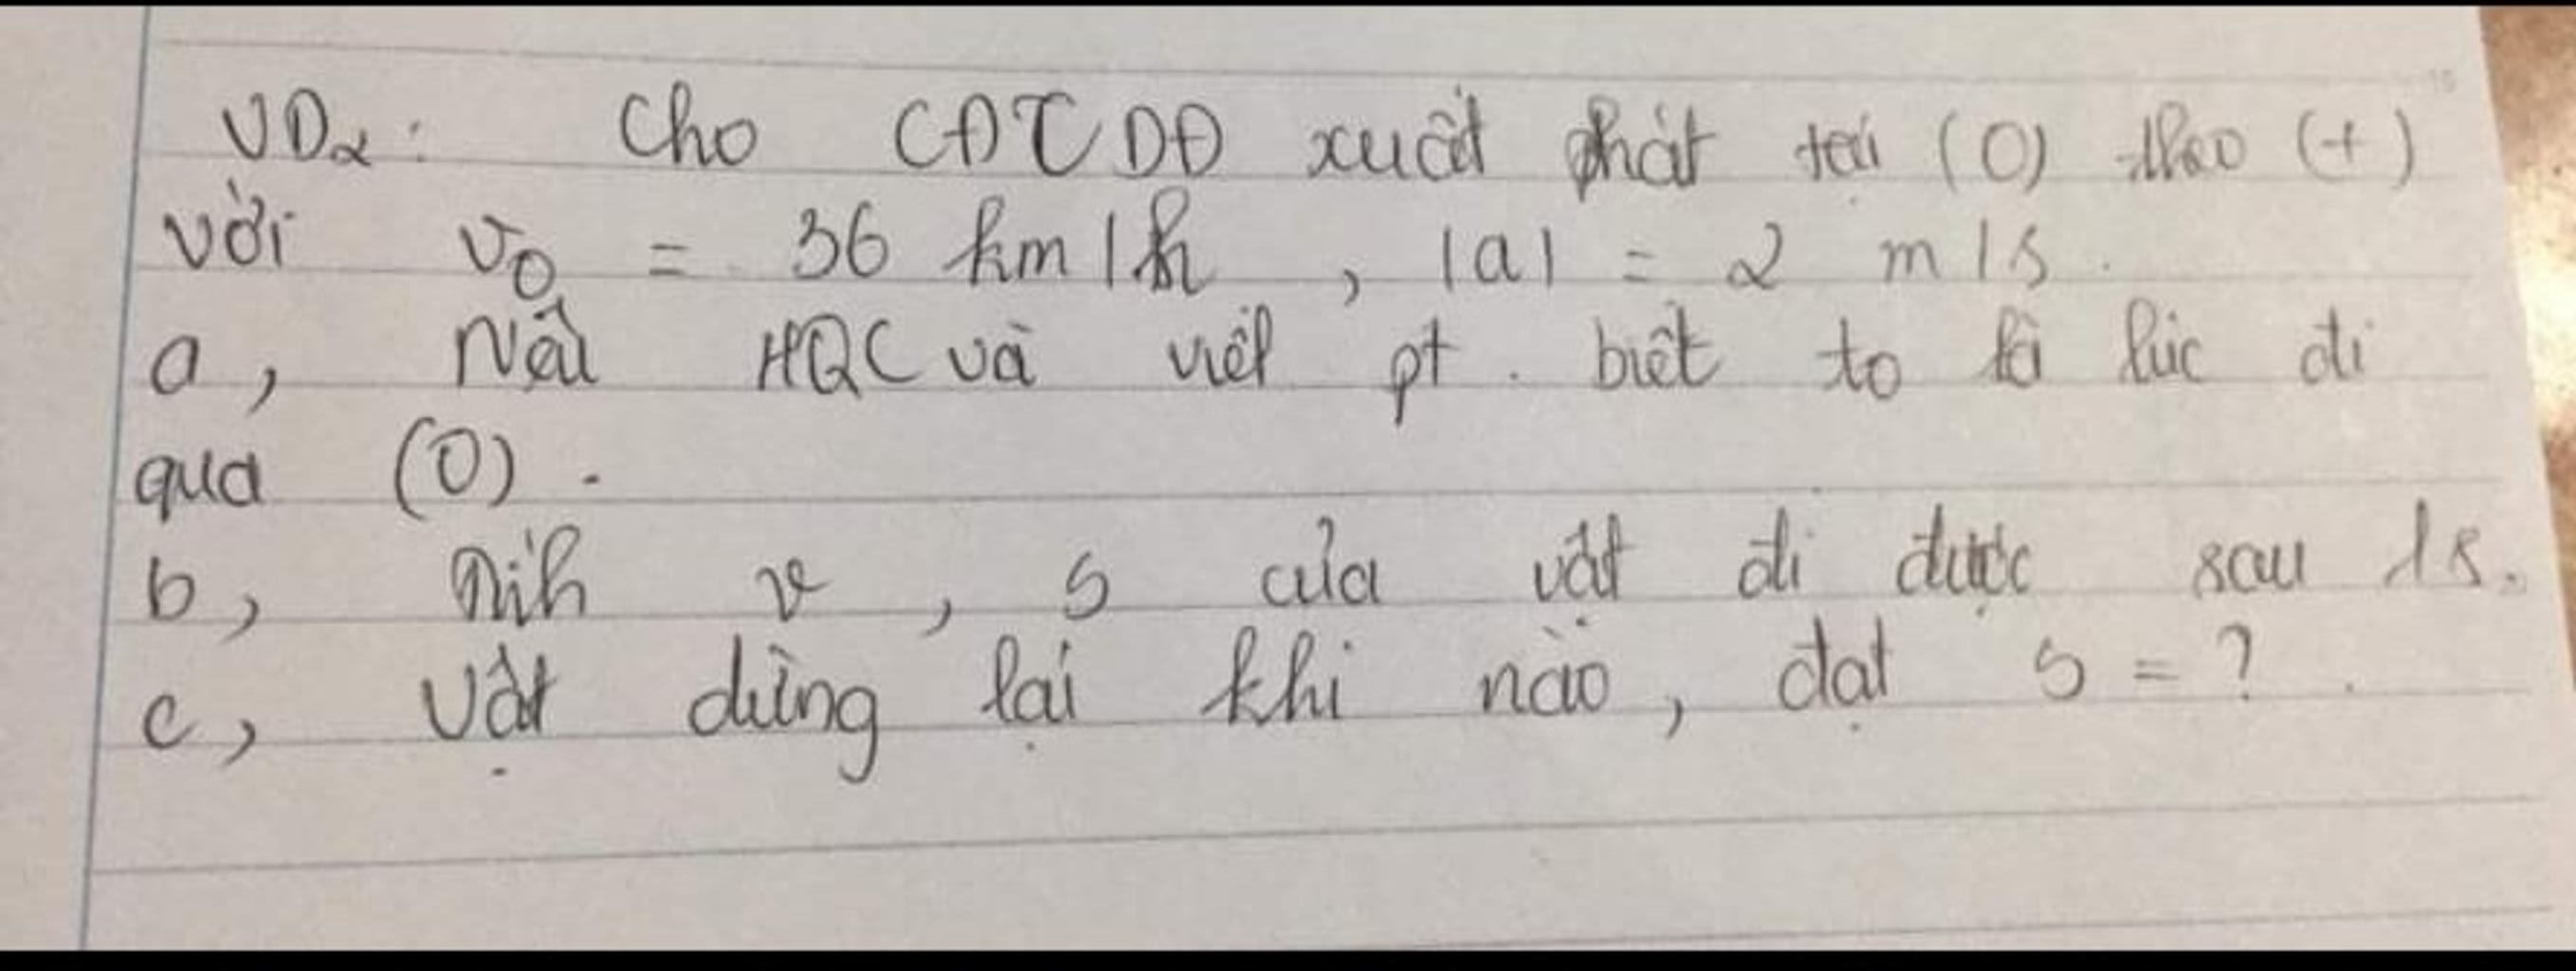 VD2: Cho CĐTCDĐ xuất phát tại (O) theo (+)
với v0 = 36 km/h, |a| = 2 m/s.
a, Nêu HQC và viết pt. biết to là lúc đi
qua (O).
b, Tính v, s của vật đi được sau 1s.
c, Vật dừng lại khi nào, đạt s = ?.